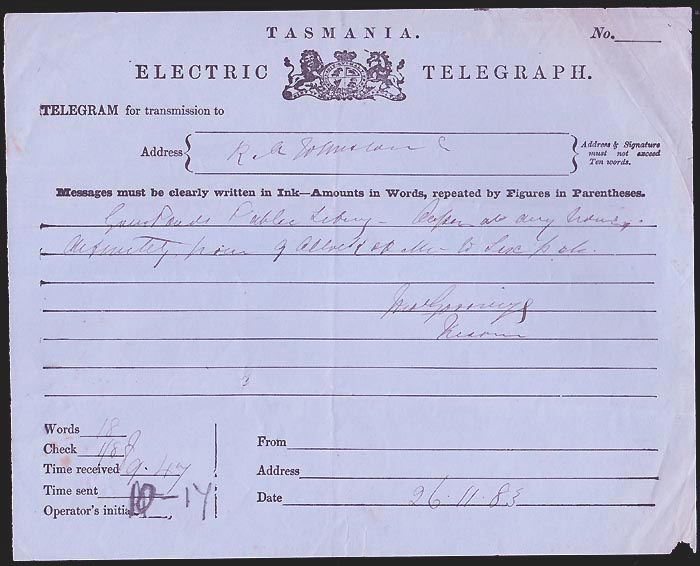 TASMANIA.
No.
ELECTRIC TELEGRAPH.
TELEGRAM for transmission to
Address R. A Johnston
Address & Signature must not exceed Ten words.
Messages must be clearly written in Ink—Amounts in Words, repeated by Figures in Parentheses.
Public Library - Open at any
from 9 Oclock to Six p.m.
Words 18
Check 18
Time received 9.47
Time sent 10-14
Operator's initials
From
Address
Date 26.11.83